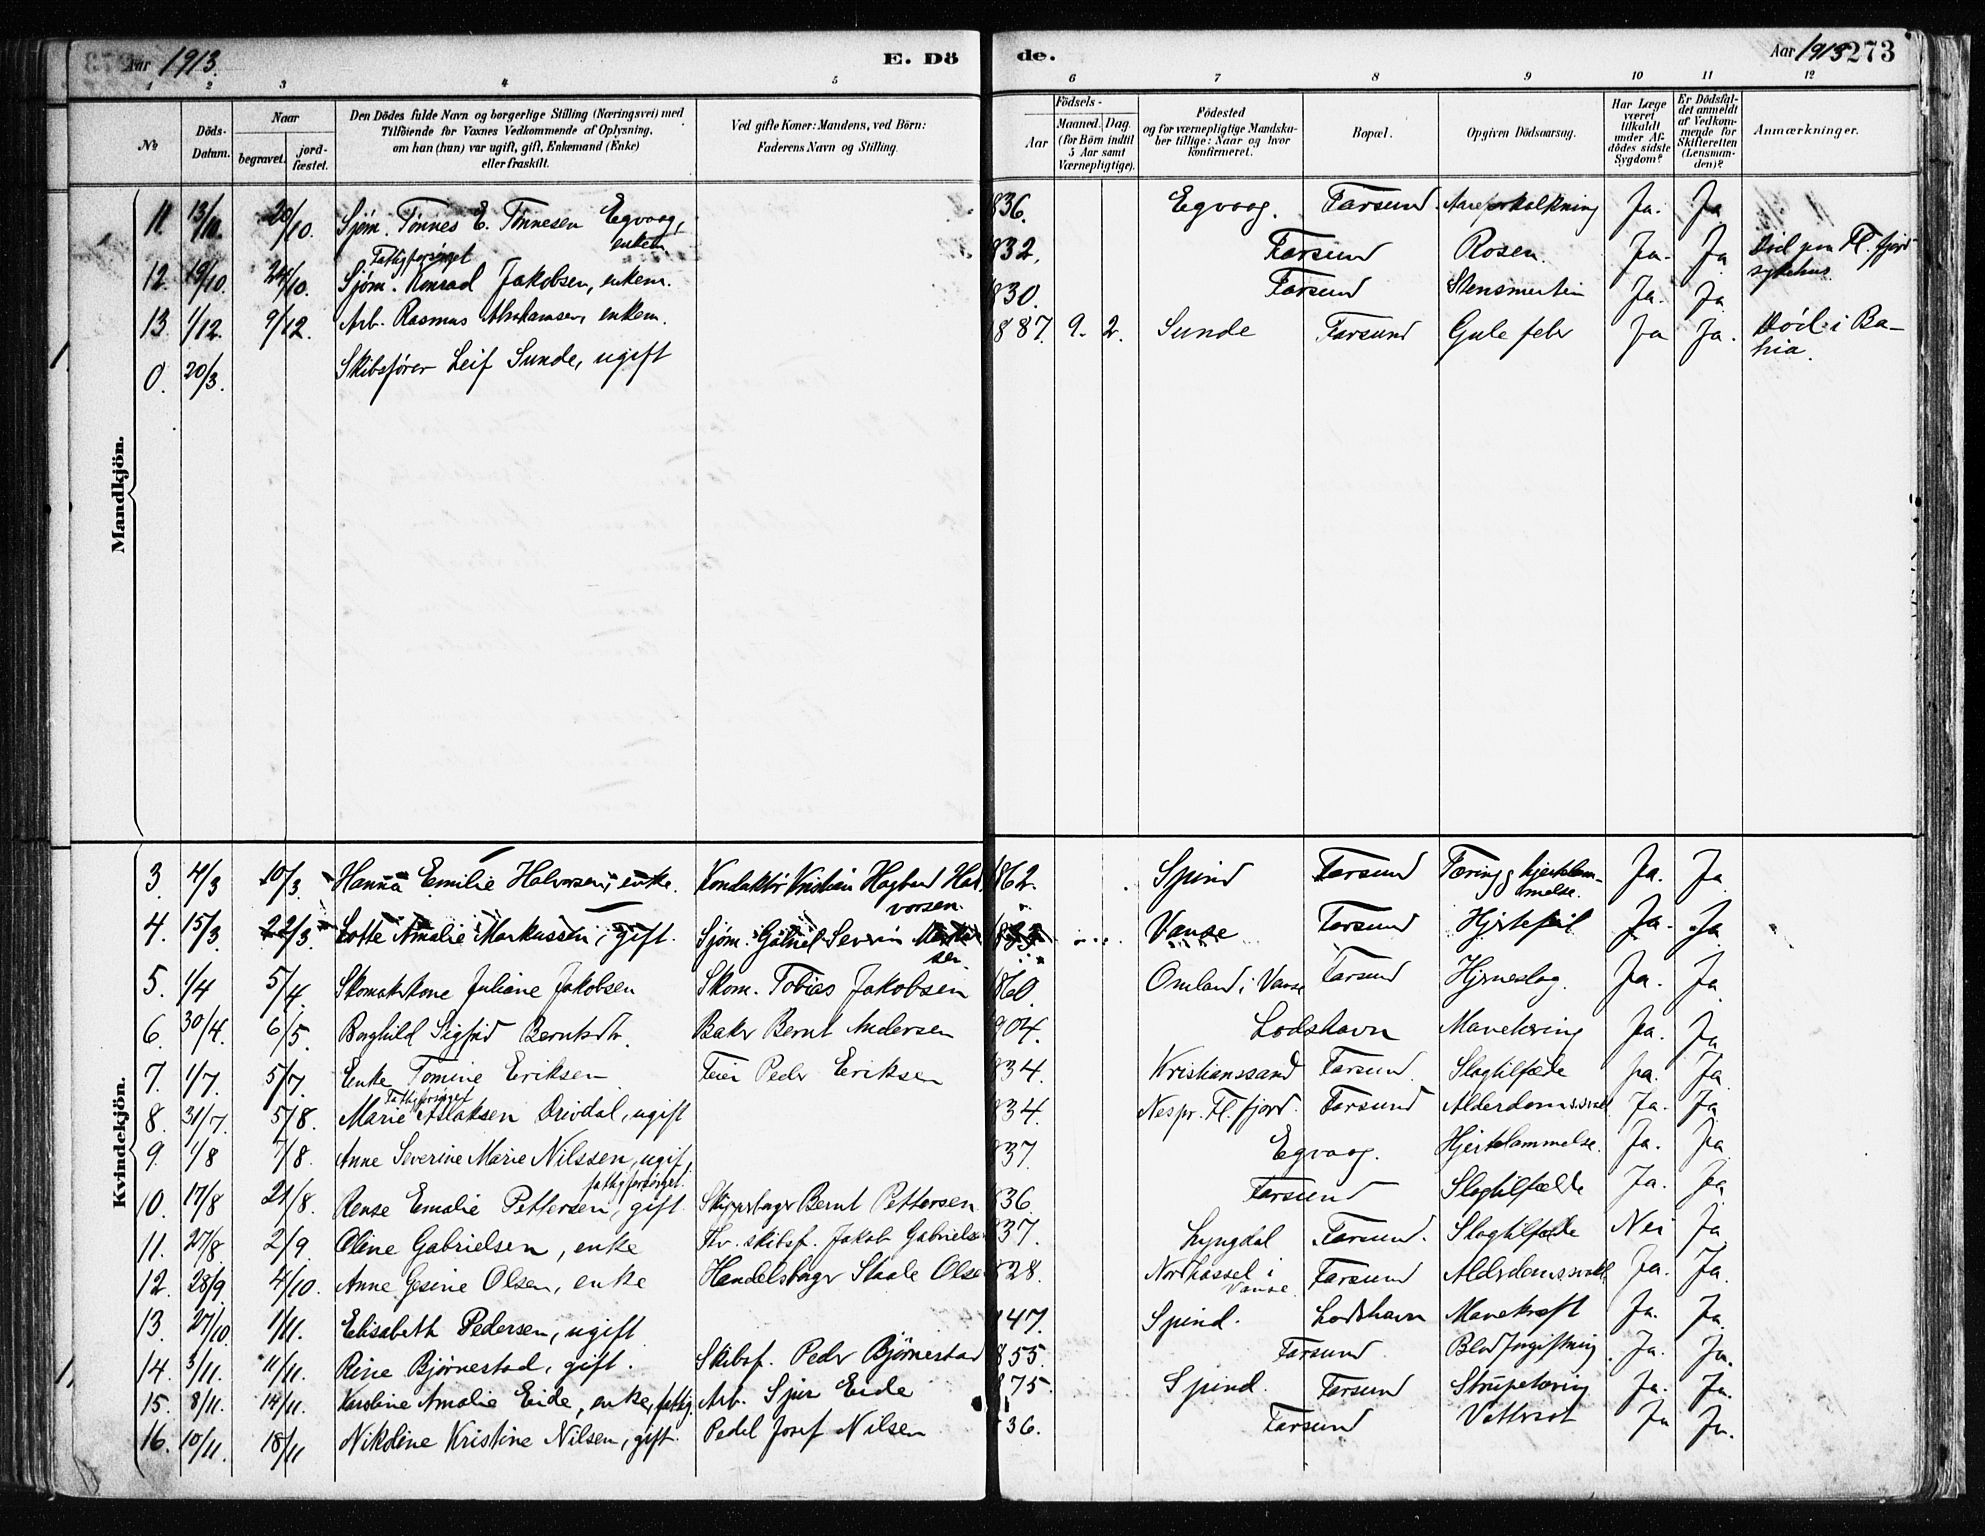 Aar 1913. E. Dö de. Aar 1913 273
1 2 3 4 5 6 7 8 9 10 11 12
№ Döds-Datum. Naar begravet. jord-fæstet. Den Dödes fulde Navn og borgerlige Stilling (Næringsvei) med Tilföiende for Voxnes Vedkommende af Oplysning, om han (hun) var ugift, gift, Enkemand (Enke) eller fraskilt. Ved gifte Koner: Mandens, ved Börn: Faderens Navn og Stilling. Födsels- Aar Maaned. Dag. (for Börn indtil 5 Aar samt Værnepligtige). Födested og for værnepligtige Mandska-ber tillige: Naar og hvor konfirmeret. Bopæl. Opgiven Dödsaarsag. Har Læge været tilkaldt under Af-dödes sidste Sygdom? Er Dödsfal-det anmeldt af Vedkom-mende for Skifteretten (Lensman-den)? Anmærkninger.
Mandkjön.
11 13/10. 20/10. Sjøm. Tønnes E. Tønnesen Egvaag, enkem. 836. Egvaag. Farsund. Aareforkalkning Ja. Ja
Fattigforsørget
12 19/10. 24/10. Sjøm. Konrad Jakobsen, enkem. 832. Farsund Rosen. Ja. Ja Død paa Fl. fjord sykehus
13. 1/12. 9/12. Arb. Rasmus Abrahamsen, enkem. 830. Farsund Stensmerter Ja. Ja
0. 20/3. Skibsfører Leif Sunde, ugift 1887. 9. 2. Sunde Farsund Gule feber Ja Ja. Død i Ba-hia.
Kvindekjön.
3. 4/3 10/3 Hanna Emilie Halvorsen, enke. Konduktør Kristian Hagbart Hal-vorsen 862. Spind Farsund Tæring g hjertelam-melse. Ja. Ja
4. 15/3. 22/3. Lotte Amalie Markussen, gift. Sjøm. Gabriel Severin Vanse Farsund Hjertefeil Ja. Ja
5. 1/4 5/4 Skomakerkone Juliane Jakobsen Skom. Tobias Jakobsen 860. Omland i Vanse Farsund Hjerneslag. Ja. Ja
6. 30/4. 6/5. Borghild Sigfrid Berntsdtr. Baker Bernt Andersen 904. Lodshavn Mavetæring Ja. Ja
7. 1/7. 5/7. Enke Tomine Eriksen Feier Peder Eriksen 834. Kristianssand Farsund. Slagtilfælde Ja. Ja
Fattigforsørget
8. 31/7. 5/8. Marie Aslaksen Drivdal, ugift 834. Nes pr. Fl. fjord. Farsund Alderdomssvakh Ja. Ja
9. 1/8 7/8. Anne Severine Marie Nilssen, ugif, fattigforsørget. 837. Egvaag. Hjertelammelse. Ja. Ja
10. 17/8 21/8. Rense Emalie Pettersen, gift. Skippsbygr Bernt Pettersen 836. Farsund Slagtilfælde Ja. Ja
11. 27/8. 2/9. Oline Gabrielsen, enke Skibsf. Jakob Gabrielse 837. Lyngdal Farsund. Slagtilfælde Nei Ja
12. 28/9 4/10. Anne Gesine Olsen, enke Handelsborger Staale Olse 828. Nordhassel i Vanse Farsund Alderdomssvakh. Ja. Ja.
13. 27/10. 1/11. Elisabeth Pedersen, ugift 847. Spind. Lodshavn Mavekræft Ja. Ja
14. 3/11. 11/11. Rine Bjørnestad, gift. Skibsf. Peder Bjørnestad 855. Farsund Blodforgiftning Ja. Ja.
15. 8/11. 14/11. Karoline Amalie Eide, enke, fattig. Arb. Sjur Eide 875. Spind. Farsund Strupetæring Ja. Ja.
16. 10/11. 18/11 Nikoline Kristine Nilsen, gift. Pedel Josef Nilsen 36. Farsund Vattersot Ja Ja.